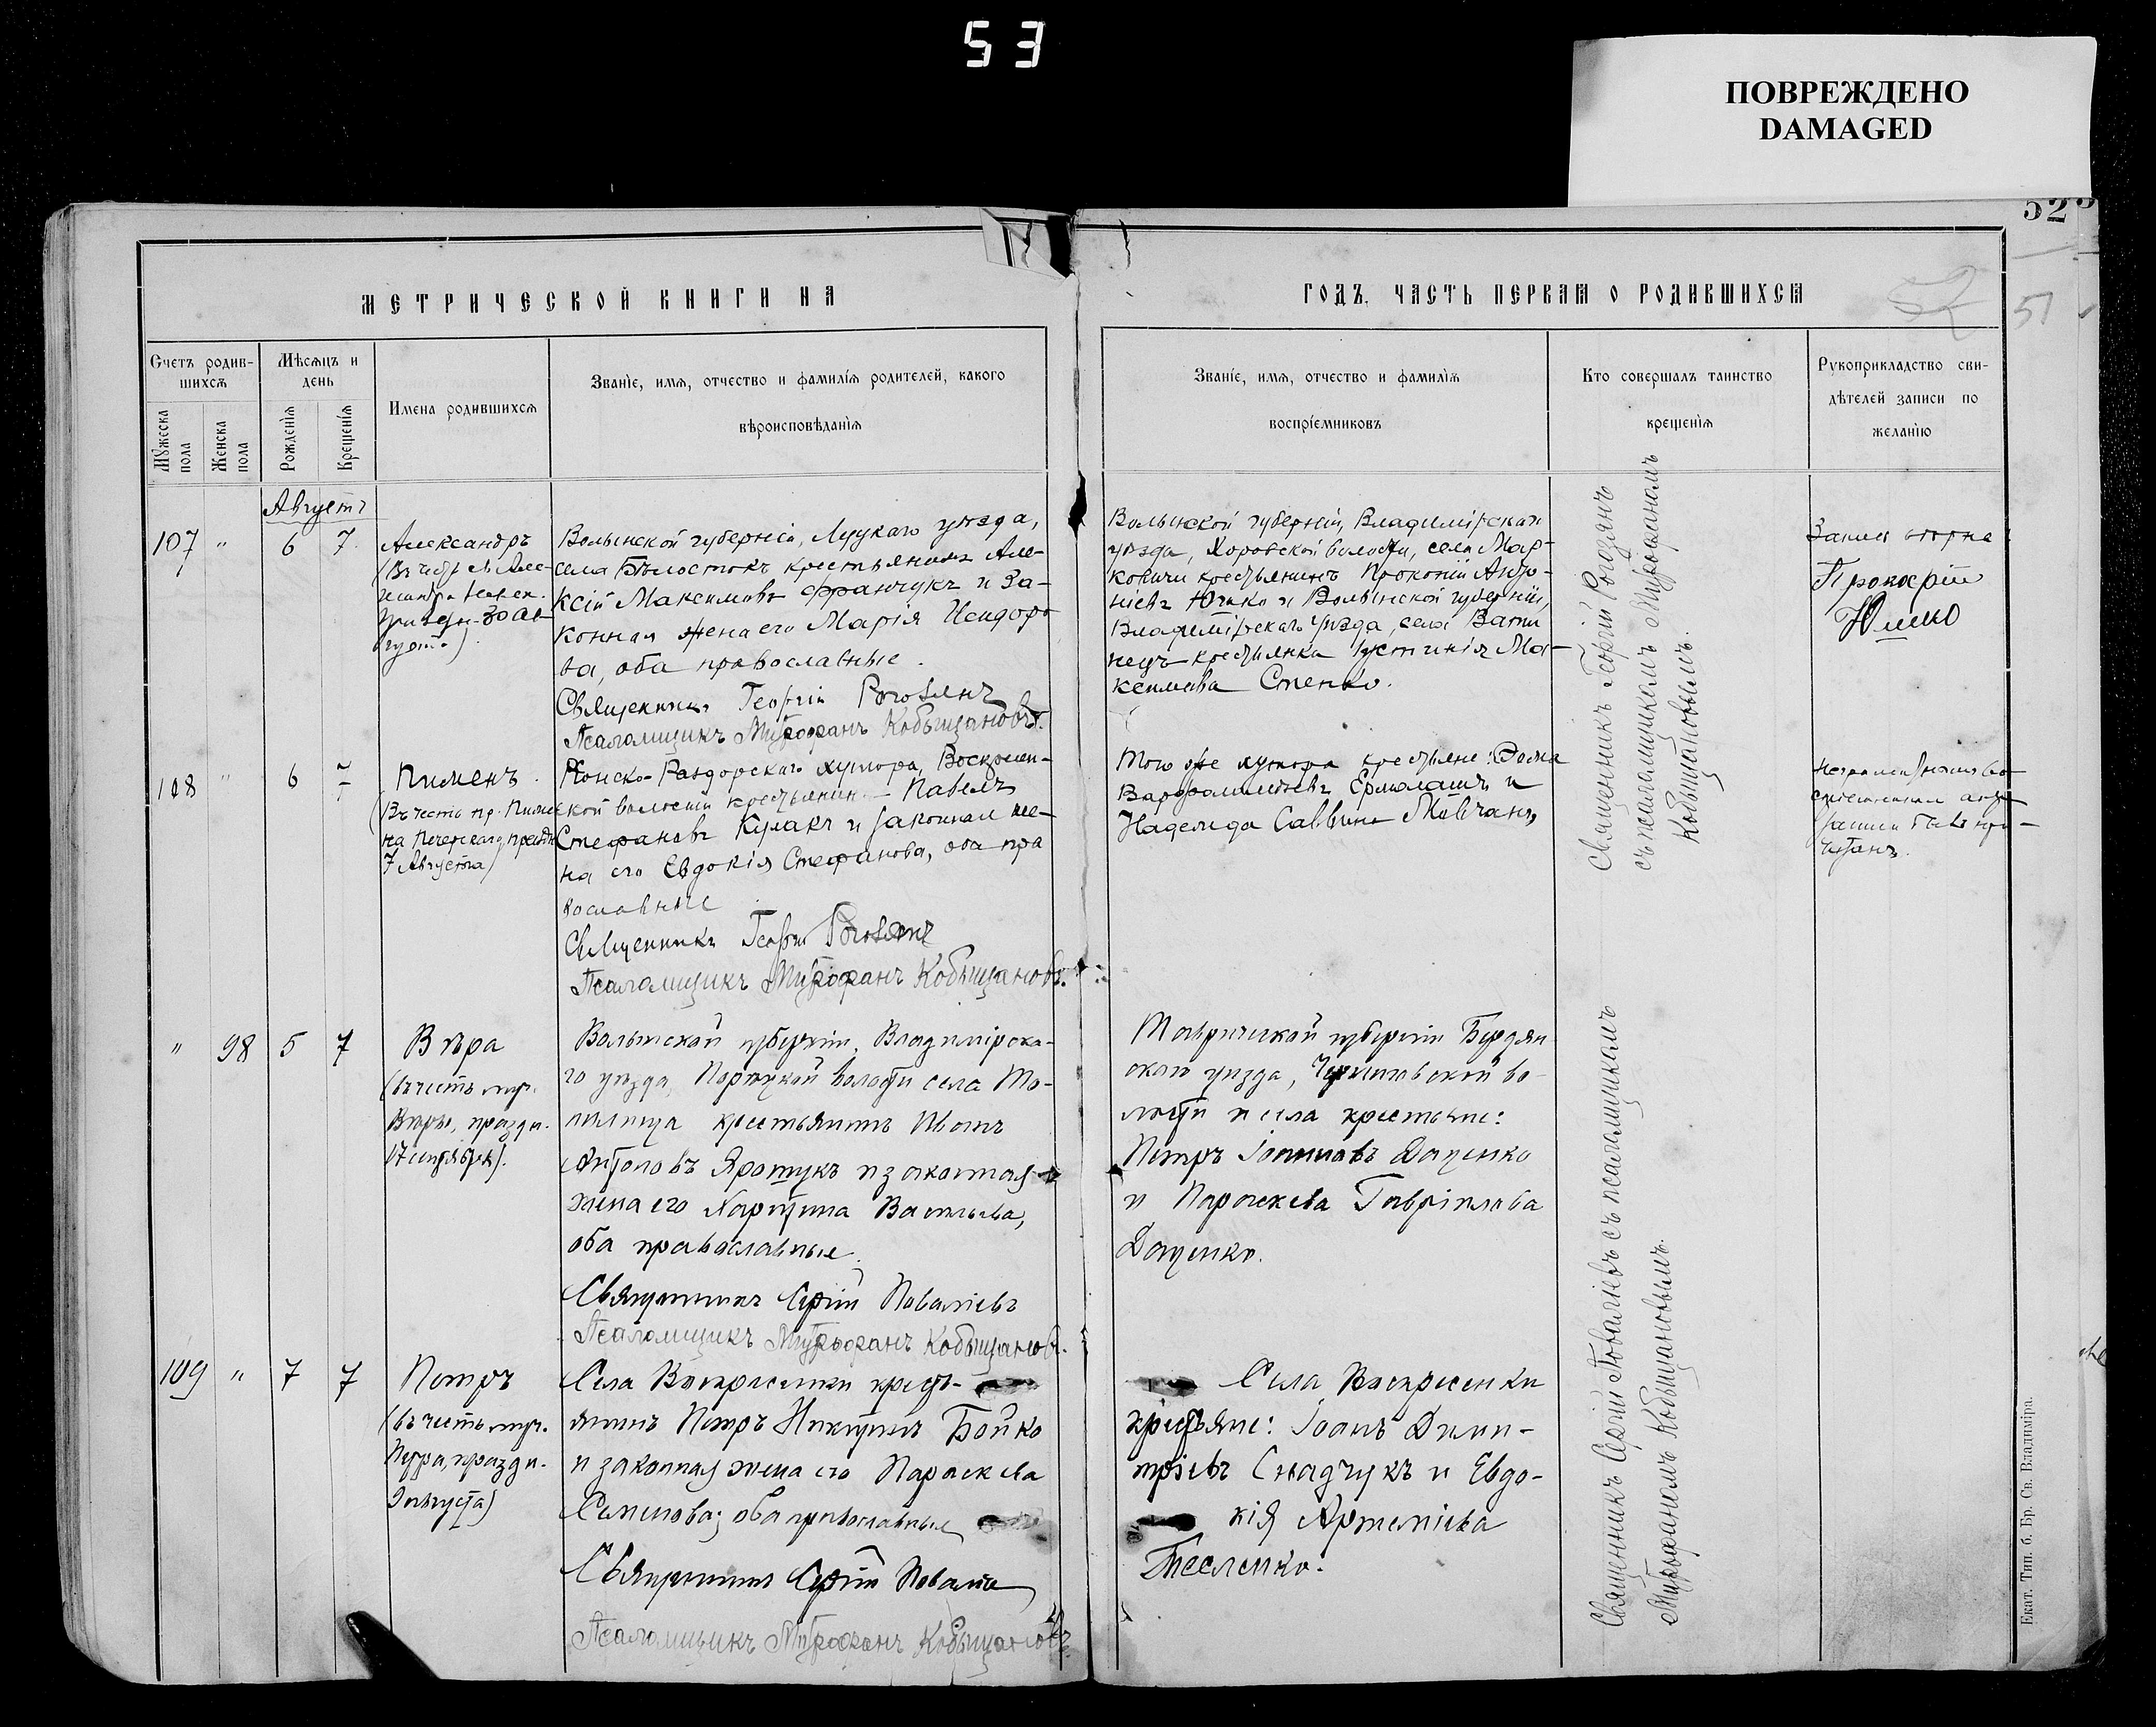 53
ПОВРЕЖДЕНО
DAMAGED
52
52
51
МЕТРИЧЕСКОЙ КНИГИ НА
ГОДЪ, ЧАСТЬ ПЕРВАЯ О РОДИВШИХСЯ
Счетъ родив-
шихся
Мужеска пола
Женска пола
Мѣсяцъ и
день
Рожденія
Крещенія
Имена родившихся
Званіе, имя, отчество и фамилія родителей, какого
вѣроисповѣданія
Званіе, имя, отчество и фамилія
воспріемниковъ
Кто совершалъ таинство
крещенія
Рукоприкладство сви-
дѣтелей записи по
желанію
Августъ
107 " 6 7
Александръ
Волынской губерніи, Луцкаго уѣзда,
села Бѣлостокъ крестьянинъ Але-
ксій Максимовъ Франчукъ и за-
конная жена его Марія Исидоро-
ва, оба православные.
Священникъ Георгій Рогозянъ
Псаломщикъ Митрофанъ Кобыщановъ.
Волынской губерніи, Владимірскаго
уѣзда, Хоровской волости, села Мар-
ковичи крестьянинъ Прокопій Анто-
ніевъ Юшко и Волынской губерніи,
Владимірскаго уѣзда, села
крестьянка Іустинія Ма-
ксимова Стенко.
Священникъ Георгій Рогозянъ
съ псаломщикомъ Митрофаномъ
Кобыщановымъ.
Прокофій
Юшко
108 " 6 7
Пименъ.
(Въ честь пр. Пиме-
на Печерскаго, праздн.
7 Августа)
Конско-Раздорскаго хутора, Воскресен-
ской волости крестьянинъ Павелъ
Стефановъ Кулакъ и законная же-
на его Евдокія Стефанова, оба пра
вославные
Священникъ Георгій Рогозянъ
Псаломщикъ Митрофанъ Кобыщановъ.
Того же хутора крестьяне:
Варфоломеевъ Ермолашъ и
Надежда Саввина Мовчанъ
" 98 5 7
Вѣра
(въ честь муч.
Вѣры, праздн.
17 сентября).
Волынской губерніи, Владимірска-
го уѣзда, Порицкой волости села То-
пилища крестьянинъ Иванъ
Антоновъ Яротукъ и законная
жена его Харитина Васильева,
оба православные.
Священникъ Сергій Поваліевъ
Псаломщикъ Митрофанъ Кобыщановъ.
Таврической губерніи Бердян
скаго уѣзда, Черниговской во-
лости и села крестьяне:
Петръ Іоанновъ Даценко
и Параскева Гавріилова
Даценко.
Священникъ Сергій Поваліевъ съ псаломщикомъ
Митрофаномъ Кобыщановымъ.
109 " 7 7
Петръ
(въ честь муч.
Петра, праздн.
9 августа)
Села Воскресенки кресть-
янинъ Петръ Никитинъ Бойко
и законная жена его Параскева
Семенова; оба православные
Священникъ Сергій Поваліевъ
Псаломщикъ Митрофанъ Кобыщановъ
Села Воскресенки
крестьяне: Іоанъ Дими-
тріевъ Снадчукъ и Евдо-
кія Артеміева
Тесленко.
Екат. Тип. б. Бр. Св. Владиміра.